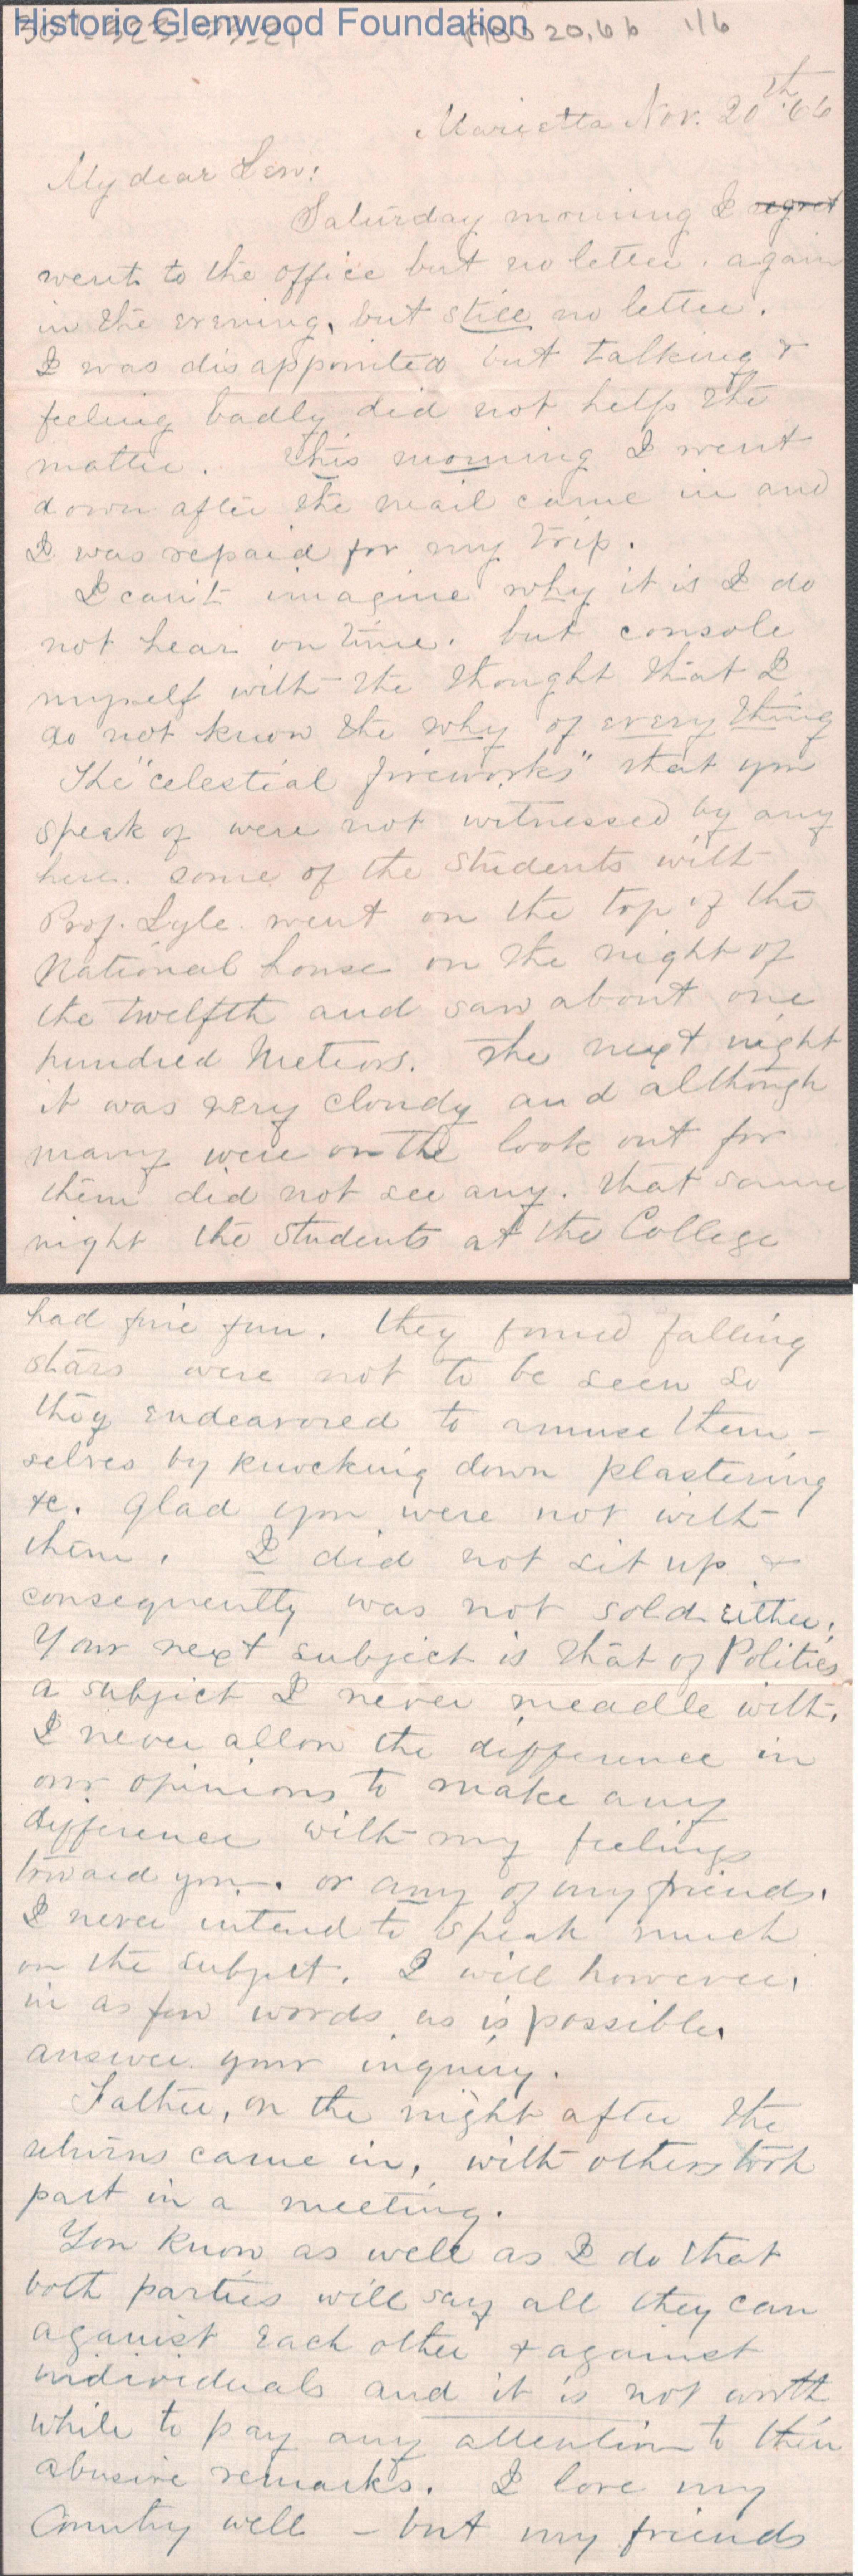 Historic Glenwood Foundation
Nov 20, 66 1/6
Marietta Nov. 20th '66
My dear Lew:
Saturday morning I regret
went to the office but no letter. again
in the evening, but still no letter.
I was disappointed but talking &
feeling badly did not help the
matter. This morning I went
down after the mail came in and
I was repaid for my trip.
I can't imagine why it is I do
not hear on time. but console
myself with the thought that I
do not know the why of every thing
The "celestial fireworks" that you
speak of were not witnessed by any
here. some of the students with
Prof. Lyle went on the top of the
National house on the night of
the twelfth and saw about one
hundred Meteors. The next night
it was very cloudy and although
many were on the look out for
them did not see any. that same
night the students at the College
had fine fun. they found falling
stars were not to be seen so
they endeavored to amuse them-
selves by knocking down plastering
&c. Glad you were not with
them. I did not sit up &
consequently was not sold either.
Your next subject is that of Politics
a subject I never meddle with.
I never allow the difference in
our opinions to make any
difference with my feelings
toward you. or any of my friends.
I never intend to speak much
on the subject. I will however,
in as few words as is possible,
answer your inquiry.
Father, on the night after the
returns came in, with others took
part in a meeting.
You know as well as I do that
both parties will say all they can
against each other & against
individuals and it is not worth
while to pay any attention to their
abusive remarks. I love my
Country well - but my friends